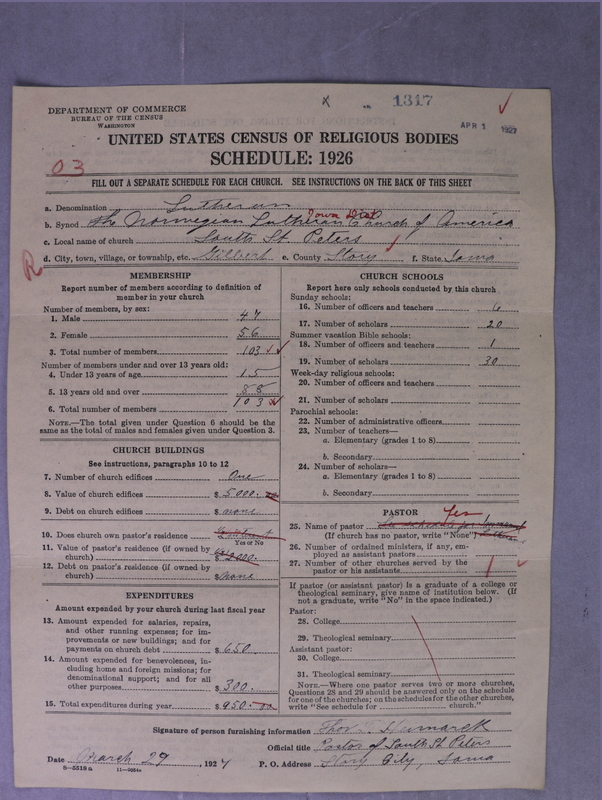 DEPARTMENT OF COMMERCE
BUREAU OF THE CENSUS
WASHINGTON
X
1317
APR 1 1927
UNITED STATES CENSUS OF RELIGIOUS BODIES
SCHEDULE: 1926
03
FILL OUT A SEPARATE SCHEDULE FOR EACH CHURCH. SEE INSTRUCTIONS ON THE BACK OF THIS SHEET
a. Denomination Lutheran
Iowa Dist
b. Synod The Norwegian Lutheran Church of America
c. Local name of church South St. Peters
d. City, town, village, or township, etc. Gilbert e. County Story f. State Iowa
R
MEMBERSHIP
Report number of members according to definition of
member in your church
Number of members, by sex:
1. Male 47
2. Female 56
3. Total number of members 103
Number of members under and over 13 years old:
4. Under 13 years of age 15
5. 13 years old and over 88
6. Total number of members 103
NOTE.—The total given under Question 6 should be
same as the total of males and females given under Question 3.
CHURCH BUILDINGS
See instructions, paragraphs 10 to 12
7. Number of church edifices One
8. Value of church edifices $ 5,000.
9. Debt on church edifices $ none
10. Does church own pastor's residence
Yes or No
11. Value of pastor's residence (if owned by
church) $
12. Debt on pastor's residence (if owned by
church) $ none
EXPENDITURES
Amount expended by your church during last fiscal year
13. Amount expended for salaries, repairs,
and other running expenses; for im-
provements or new buildings; and for
payments on church debt $ 650.
14. Amount expended for benevolences, in-
cluding home and foreign missions; for
denominational support; and for all
other purposes $ 300.
15. Total expenditures during year $ 950.00
CHURCH SCHOOLS
Report here only schools conducted by this church
Sunday schools:
16. Number of officers and teachers 6
17. Number of scholars 20
Summer vacation Bible schools:
18. Number of officers and teachers 1
19. Number of scholars 30
Week-day religious schools:
20. Number of officers and teachers
21. Number of scholars
Parochial schools:
22. Number of administrative officers
23. Number of teachers—
a. Elementary (grades 1 to 8)
b. Secondary
24. Number of scholars—
a. Elementary (grades 1 to 8)
b. Secondary
PASTOR
Yes
25. Name of pastor
(If church has no pastor, write "None")
26. Number of ordained ministers, if any, em-
ployed as assistant pastors
27. Number of other churches served by the
pastor or his assistants 1
If pastor (or assistant pastor) is a graduate of a college or
theological seminary, give name of institution below. (If
not a graduate, write "No" in the space indicated.)
Pastor:
28. College
29. Theological seminary
Assistant pastor:
30. College
31. Theological seminary
NOTE.—Where one pastor serves two or more churches,
Questions 28 and 29 should be answered only on the schedule
for one of the churches; on the schedules for the other churches,
write "See schedule for church."
Signature of person furnishing information
Official title Pastor of South St Peters
Date March 29, 1927 P. O. Address Story City, Iowa
8-5518a